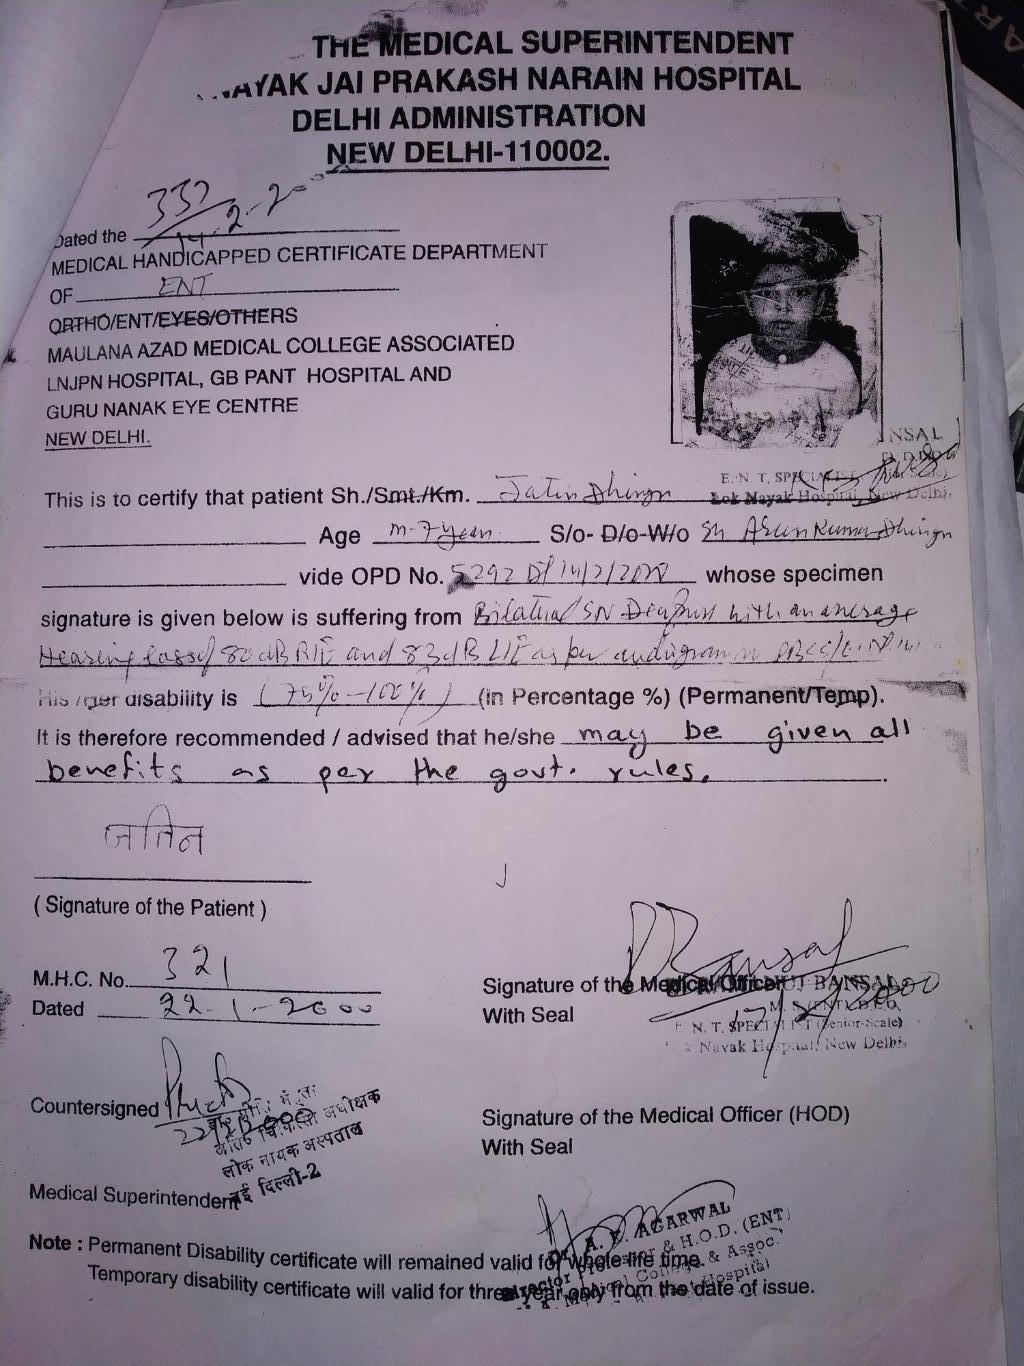 THE MEDICAL SUPERINTENDENT
NAYAK JAI PRAKASH NARAIN HOSPITAL
DELHI ADMINISTRATION
NEW DELHI-110002.
332
Dated the 14.2.20
MEDICAL HANDICAPPED CERTIFICATE DEPARTMENT
OF ENT
ORTHO/ENT/EYES/OTHERS
MAULANA AZAD MEDICAL COLLEGE ASSOCIATED
LNJPN HOSPITAL, GB PANT HOSPITAL AND
GURU NANAK EYE CENTRE
NEW DELHI.
NSAL
E. N. T. SPECIALIST
Lok Nayak Hospital, New Delhi
This is to certify that patient Sh./Smt./Km. Jatin Dhingra
Age m-7 years S/o- D/o-W/o Sh Arun Kumar Dhingra
vide OPD No. 5292 Dt 14/2/2000 whose specimen
signature is given below is suffering from Bilateral SN Deafness with an average
Hearing loss of 80 dB RtE and 83 dB LtE as per audiogram
His /her disability is (75%-100%) (in Percentage %) (Permanent/Temp).
It is therefore recommended / advised that he/she may be given all
benefits as per the govt. rules.
जतिन
( Signature of the Patient )
M.H.C. No. 321
Dated 22-1-2000
Signature of the Medical Officer
With Seal
BANSAL
M. S. (ENT) D.L.O.
E. N. T. SPECIALIST (Senior-Scale)
Nayak Hospital, New Delhi
Countersigned
चिकित्सा अधीक्षक
लोक नायक अस्पताल
नई दिल्ली-2
Medical Superintendent
Signature of the Medical Officer (HOD)
With Seal
AGARWAL
Director Professor & H.O.D. (ENT)
Medical College & Assoc.
Hospital
Note : Permanent Disability certificate will remained valid for whole life time.
Temporary disability certificate will valid for three year only from the date of issue.